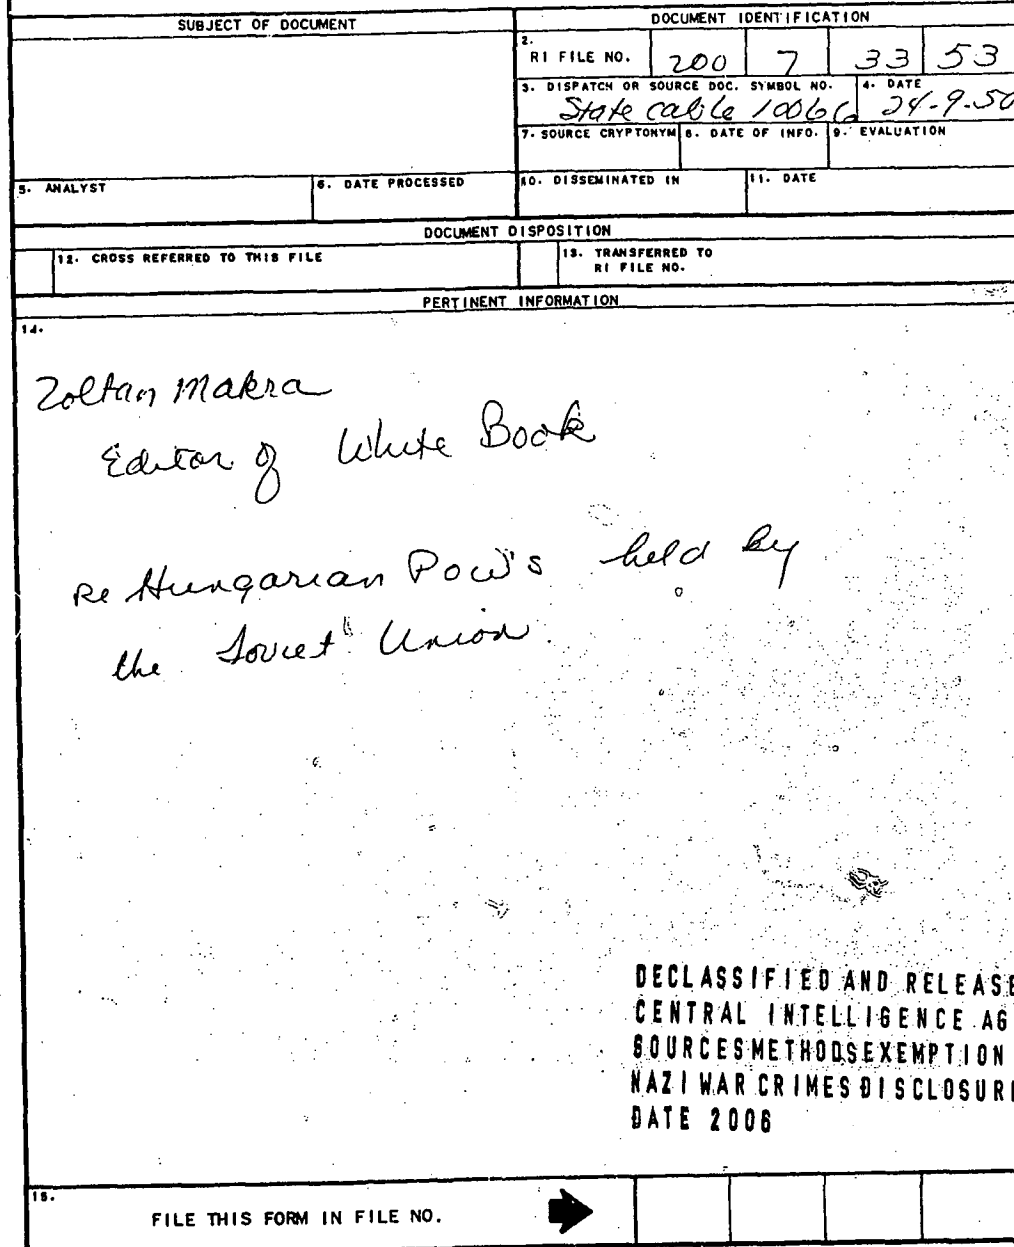 SUBJECT OF DOCUMENT
DOCUMENT IDENTIFICATION
2.
RI FILE NO. 200 7 33 53
3. DISPATCH OR SOURCE DOC. SYMBOL NO.
State cable 10066
4. DATE
24-9-50
7. SOURCE CRYPTONYM
8. DATE OF INFO.
9. EVALUATION
5. ANALYST
6. DATE PROCESSED
10. DISSEMINATED IN
11. DATE
DOCUMENT DISPOSITION
12. CROSS REFERRED TO THIS FILE
13. TRANSFERRED TO
RI FILE NO.
PERTINENT INFORMATION
14.
Zoltan Makra
Editor of White Book
Re Hungarian POW's held by
the Soviet Union.
DECLASSIFIED AND RELEASE
CENTRAL INTELLIGENCE AG
SOURCESMETHODSEXEMPTION
NAZI WAR CRIMES DISCLOSUR
DATE 2006
15.
FILE THIS FORM IN FILE NO.